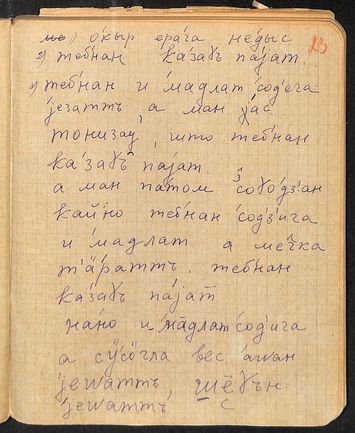 23
о́кыр ера́га не́дыс
2) те́бнан ка́завъ па́jат.
3) те́бнан и ма́длат со́д'ега
jе́заттъ, а ман jа́с
тонизау, што те́бнан
ка́завъ па́jат.
а ман па́том со́во́дз'ан
кайно те́бнан со́дз'ига
и ма́длат а ме́чка
т'а́раттъ. те́бнан
ка́завъ па́jат
на́но и ма́длат со́д'ига
а су́со́гла вес а́шан
jешаттъ, ше́ вън
jешаттъ